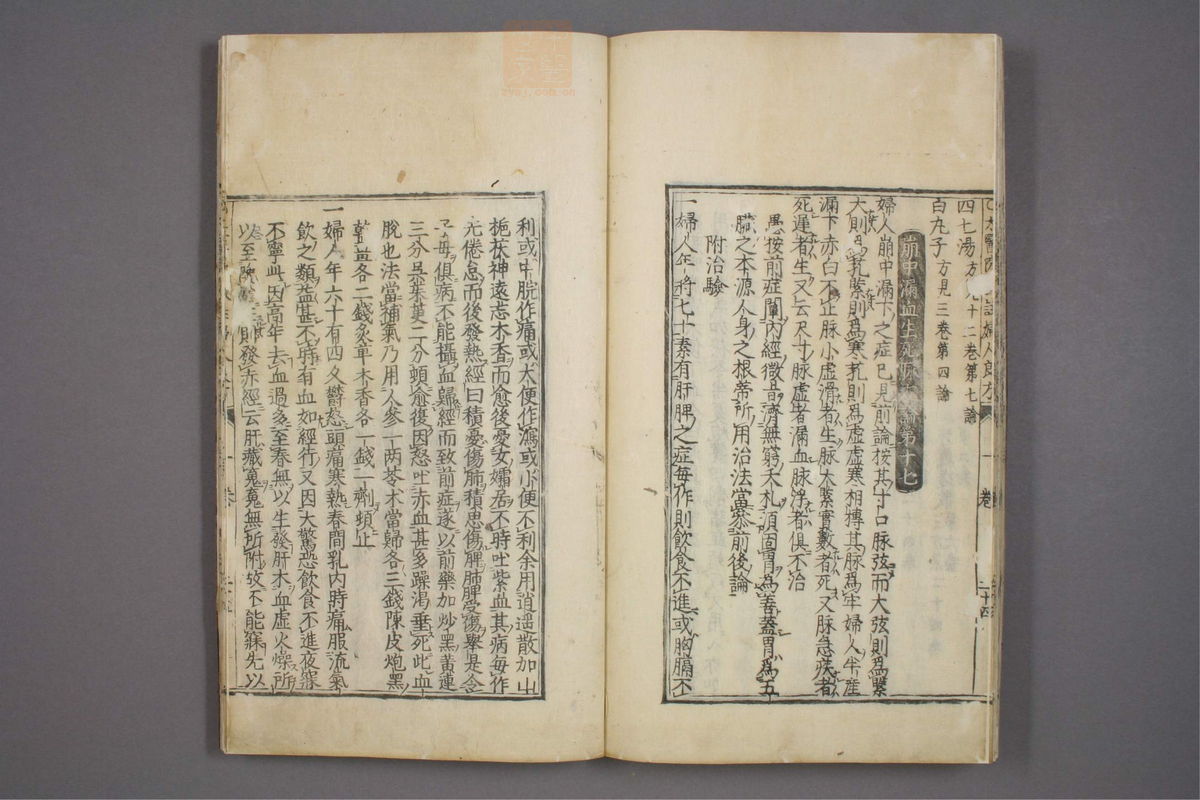 四七湯方見十二卷第七論
白丸子方見三卷第四論
崩中漏血生死脉 第十七
婦人崩中漏下之症已見前論按其寸口脉弦而大弦則爲緊
大則爲芤緊則爲寒芤則爲虛虛寒相搏其脉爲牢婦人半産
漏下赤白不止脉小虛滑者生脉大緊實數者死又脉急疾者
死遲者生又云尺寸脉虛者漏血脉浮者俱不治
愚按前症闡內經微旨濟無窮夭札須固胃爲善蓋胃爲五
臟之本源人身之根蒂所用治法當叅前後論
附治驗
一婦人年將七十素有肝脾之症每作則飲食不進或胸膈不
利或中脘作痛或大便作瀉或小便不利余用逍遥散加山
梔茯神遠志木香而愈後憂女孀居不時吐紫血其病每作
先倦怠而後發熱經曰積憂傷肺積思傷脾脾肺受傷舉是令
子母俱病不能攝血歸經而致前症遂以前藥加炒黑黃連
三分吳茱萸二分頓愈復因怒吐赤血甚多躁渴垂死此血
脫也法當補氣乃用人參一兩苓术當歸各三錢陳皮炮黑
乾薑各二錢炙草木香各一錢一劑頓止
一婦人年六十有四久鬱怒頭痛寒熱春間乳內時痛服流氣
飲之類益甚不時有血如經行又因大驚恐飲食不進夜寐
不寧此因高年去血過多至春無以生發肝木血虛火燥所
以至 則發赤經云肝藏魂魂無所附故不能寐先以
卷
二十四
卷